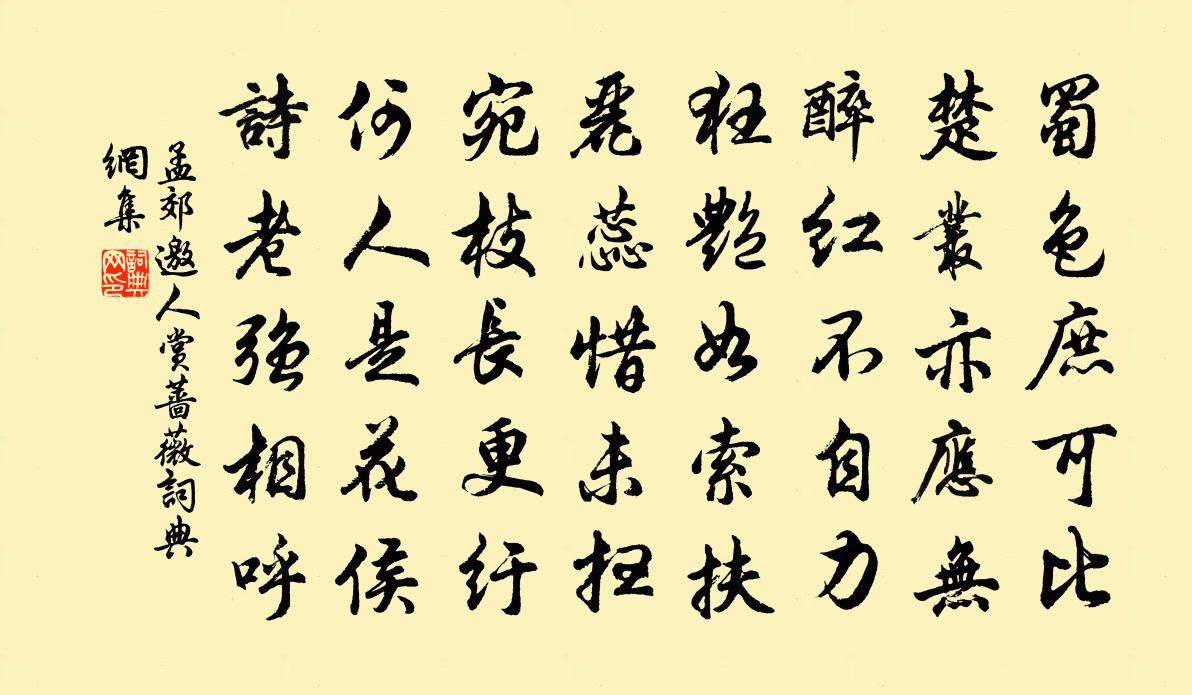 蜀色庶可比
楚叢亦應無
醉红不自力
狂艷如索扶
麗蕊惜未扫
宛枝長更紆
何人是花侯
詩老強相呼
孟郊邀人賞薔薇詞典
網集
詞典
网印